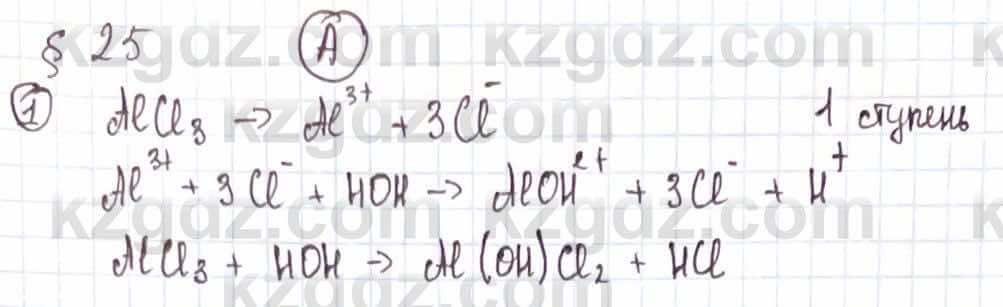 § 25 А
1 AlCl₃ → Al³⁺ + 3Cl⁻ 1 ступень
Al³⁺ + 3Cl⁻ + HOH → AlOH²⁺ + 3Cl⁻ + H⁺
AlCl₃ + HOH → Al(OH)Cl₂ + HCl
kzgdz.com
kzgdz.com
kzgdz.com
kzgdz.com
kzgdz.com
kzgdz.com